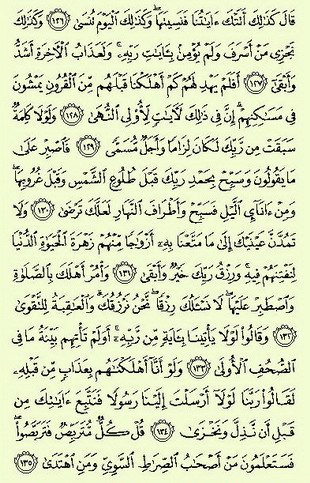 قَالَ كَذَٰلِكَ أَتَتْكَ ءَايَـٰتُنَا فَنَسِيتَهَا ۖ وَكَذَٰلِكَ ٱلْيَوْمَ تُنسَىٰ ١٢٦ وَكَذَٰلِكَ
نَجْزِى مَنْ أَسْرَفَ وَلَمْ يُؤْمِنۢ بِـَٔايَـٰتِ رَبِّهِۦ ۚ وَلَعَذَابُ ٱلْـَٔاخِرَةِ أَشَدُّ
وَأَبْقَىٰٓ ١٢٧ أَفَلَمْ يَهْدِ لَهُمْ كَمْ أَهْلَكْنَا قَبْلَهُم مِّنَ ٱلْقُرُونِ يَمْشُونَ
فِى مَسَـٰكِنِهِمْ ۗ إِنَّ فِى ذَٰلِكَ لَـَٔايَـٰتٍ لِّأُو۟لِى ٱلنُّهَىٰ ١٢٨ وَلَوْلَا كَلِمَةٌ
سَبَقَتْ مِن رَّبِّكَ لَكَانَ لِزَامًا وَأَجَلٌ مُّسَمًّى ١٢٩ فَٱصْبِرْ عَلَىٰ
مَا يَقُولُونَ وَسَبِّحْ بِحَمْدِ رَبِّكَ قَبْلَ طُلُوعِ ٱلشَّمْسِ وَقَبْلَ غُرُوبِهَا ۖ
وَمِنْ ءَانَآئِ ٱلَّيْلِ فَسَبِّحْ وَأَطْرَافَ ٱلنَّهَارِ لَعَلَّكَ تَرْضَىٰ ١٣٠ وَلَا
تَمُدَّنَّ عَيْنَيْكَ إِلَىٰ مَا مَتَّعْنَا بِهِۦٓ أَزْوَٰجًا مِّنْهُمْ زَهْرَةَ ٱلْحَيَوٰةِ ٱلدُّنْيَا
لِنَفْتِنَهُمْ فِيهِ ۚ وَرِزْقُ رَبِّكَ خَيْرٌ وَأَبْقَىٰ ١٣١ وَأْمُرْ أَهْلَكَ بِٱلصَّلَوٰةِ
وَٱصْطَبِرْ عَلَيْهَا ۖ لَا نَسْـَٔلُكَ رِزْقًا ۖ نَّحْنُ نَرْزُقُكَ ۗ وَٱلْعَـٰقِبَةُ لِلتَّقْوَىٰ
١٣٢ وَقَالُوا۟ لَوْلَا يَأْتِينَا بِـَٔايَةٍ مِّن رَّبِّهِۦٓ ۚ أَوَلَمْ تَأْتِهِم بَيِّنَةُ مَا فِى
ٱلصُّحُفِ ٱلْأُولَىٰ ١٣٣ وَلَوْ أَنَّآ أَهْلَكْنَـٰهُم بِعَذَابٍ مِّن قَبْلِهِۦ
لَقَالُوا۟ رَبَّنَا لَوْلَآ أَرْسَلْتَ إِلَيْنَا رَسُولًا فَنَتَّبِعَ ءَايَـٰتِكَ مِن
قَبْلِ أَن نَّذِلَّ وَنَخْزَىٰ ١٣٤ قُلْ كُلٌّ مُّتَرَبِّصٌ فَتَرَبَّصُوا۟ ۖ
فَسَتَعْلَمُونَ مَنْ أَصْحَـٰبُ ٱلصِّرَٰطِ ٱلسَّوِىِّ وَمَنِ ٱهْتَدَىٰ ١٣٥